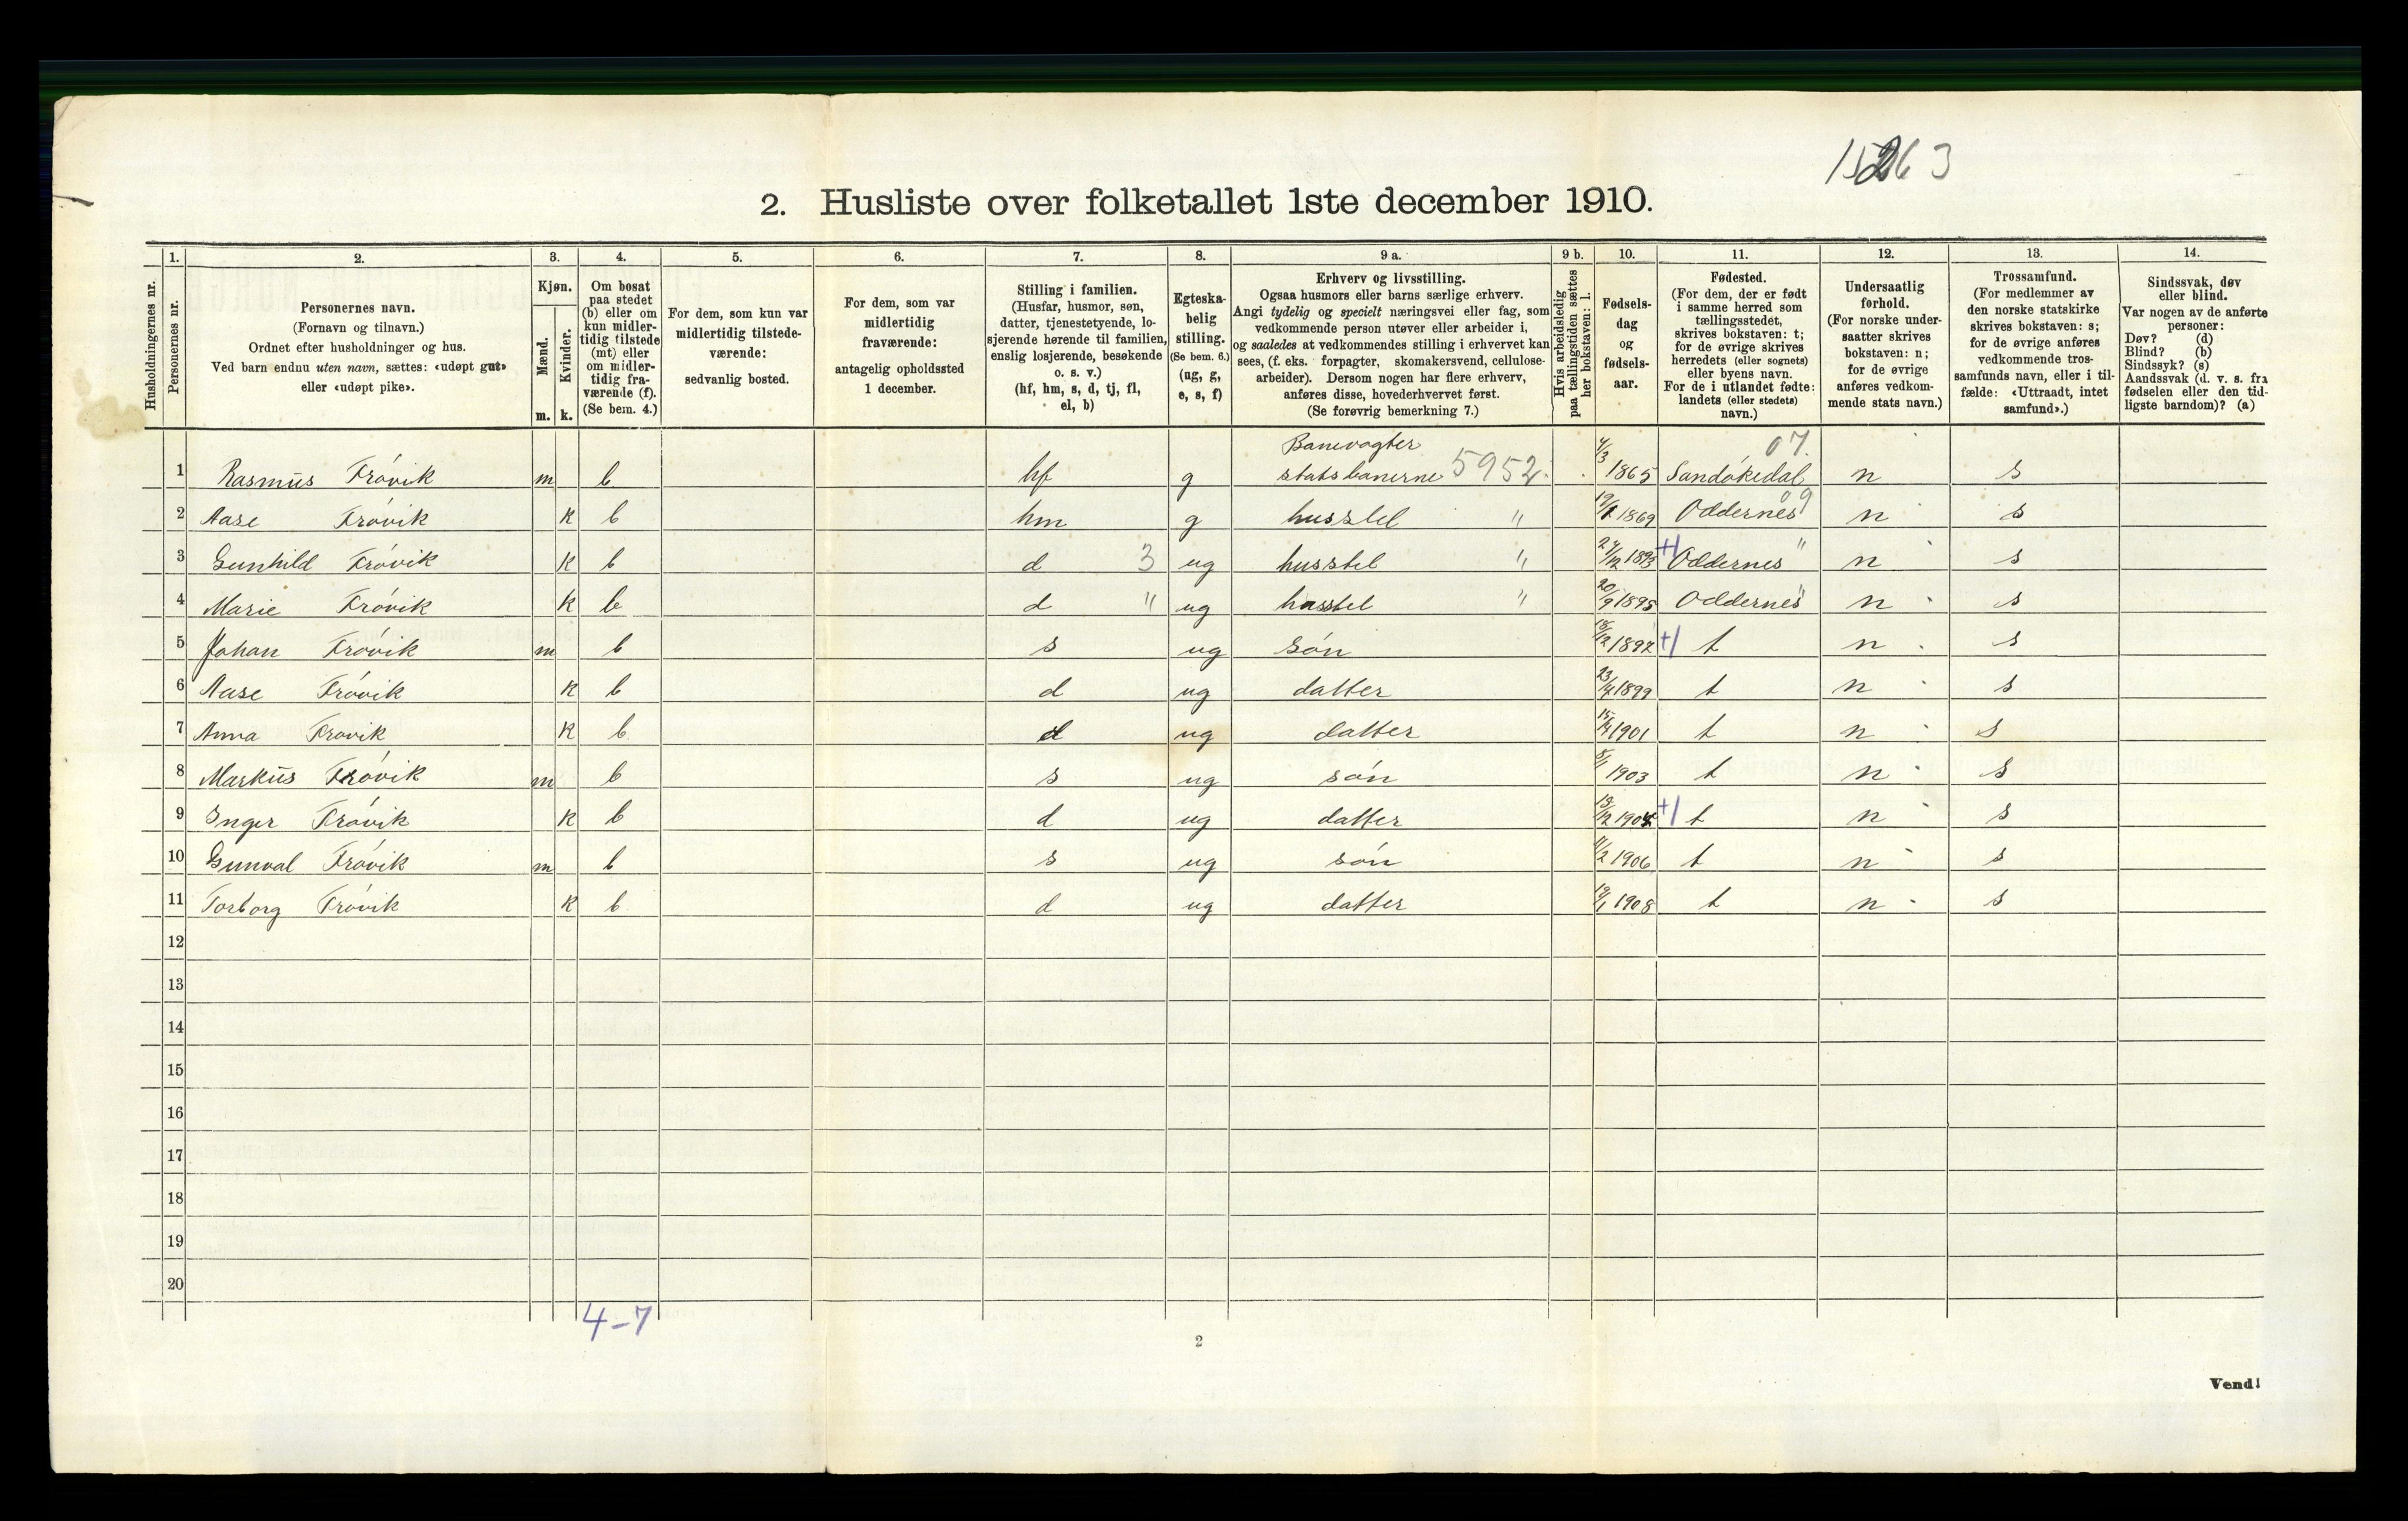 15263
2. Husliste over folketallet 1ste december 1910.
Husholdningernes nr.
1. Personernes nr.
2. Personernes navn.
(Fornavn og tilnavn.)
Ordnet efter husholdninger og hus.
Ved barn endnu uten navn, sættes: «udøpt gut»
eller «udøpt pike».
3. Kjøn.
Mænd. m.
Kvinder. k.
4. Om bosat
paa stedet
(b) eller om
kun midler-
tidig tilstede
(mt) eller
om midler-
tidig fra-
værende (f).
(Se bem. 4.)
5. For dem, som kun var
midlertidig tilstede-
værende:
sedvanlig bosted.
6. For dem, som var
midlertidig
fraværende:
antagelig opholdssted
1 december.
7. Stilling i familien.
(Husfar, husmor, søn,
datter, tjenestetyende, lo-
sjerende hørende til familien,
enslig losjerende, besøkende
o. s. v.)
(hf, hm, s, d, tj, fl,
el, b)
8. Egteska-
belig
stilling.
(Se bem. 6.)
(ug, g,
e, s, f)
9 a. Erhverv og livsstilling.
Ogsaa husmors eller barns særlige erhverv.
Angi tydelig og specielt næringsvei eller fag, som
vedkommende person utøver eller arbeider i,
og saaledes at vedkommendes stilling i erhvervet kan
sees, (f. eks. forpagter, skomakersvend, cellulose-
arbeider). Dersom nogen har flere erhverv,
anføres disse, hovederhvervet først.
(Se forøvrig bemerkning 7.)
9 b. Hvis arbeidsledig
paa tællingstiden sættes
her bokstaven: l.
10. Fødsels-
dag
og
fødsels-
aar.
11. Fødested.
(For dem, der er født
i samme herred som
tællingsstedet,
skrives bokstaven: t;
for de øvrige skrives
herredets (eller sognets)
eller byens navn.
For de i utlandet fødte:
landets (eller stedets)
navn.)
12. Undersaatlig
forhold.
(For norske under-
saatter skrives
bokstaven: n;
for de øvrige
anføres vedkom-
mende stats navn.)
13. Trossamfund.
(For medlemmer av
den norske statskirke
skrives bokstaven: s;
for de øvrige anføres
vedkommende tros-
samfunds navn, eller i til-
fælde: «Uttraadt, intet
samfund».)
14. Sindssvak, døv
eller blind.
Var nogen av de anførte
personer:
Døv? (d)
Blind? (b)
Sindssyk? (s)
Aandssvak (d. v. s. fra
fødselen eller den tid-
ligste barndom)? (a)
Banevogter 07.
1 Rasmus Frövik m b hf g statsbanerne 5952 4/3 1865 Sandökedal n s
2 Aase Frövik k b hm g husstel " 19/1 1869 Oddernes 09 n s
3 Gunhild Frövik k b d 3 ug husstel " 24/12 1893 +| Oddernes " n s
4 Marie Frövik k b d " ug husstel " 20/9 1895 Oddernes " n s
5 Johan Frövik m b s ug sön 18/12 1897 +| t n s
6 Aase Frövik k b d ug datter 23/4 1899 t n s
7 Anna Frovik k b d ug datter 15/4 1901 t n s
8 Markus Frövik m b s ug sön 5/1 1903 t n s
9 Inger Frövik k b d ug datter 19/12 1904 +| t n s
10 Gunval Frövik m b s ug sön 11/2 1906 t n s
11 Torborg Frövik k b d ug datter 19/1 1908 t n s
12
13
14
15
16
17
18
19
20
4-7
2
Vend!